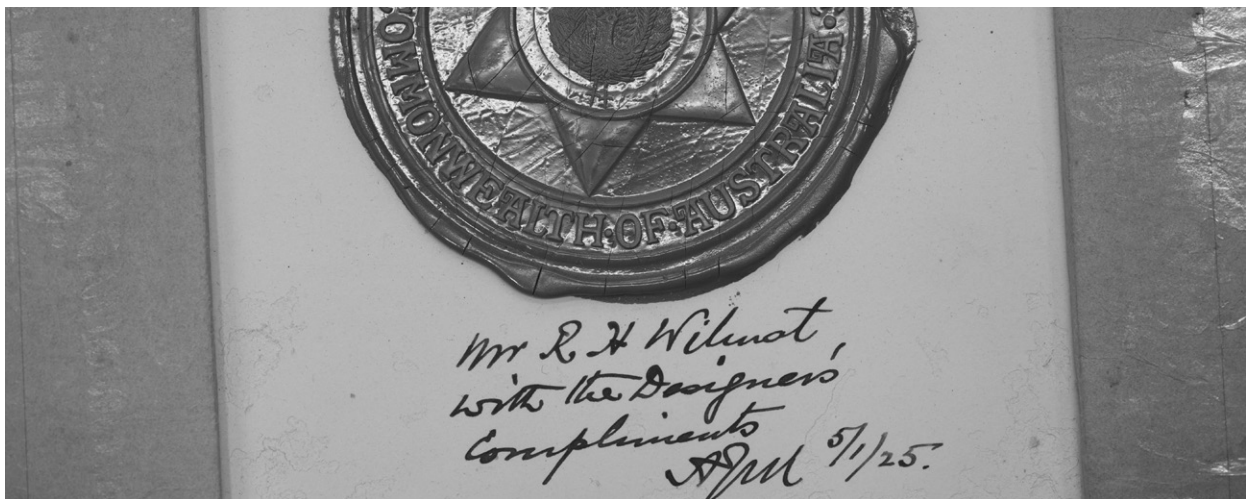 COMMONWEALTH·OF·AUSTRALIA·
Mr R. H Wilmot,
with the Designer's
Compliments
5/1/25.